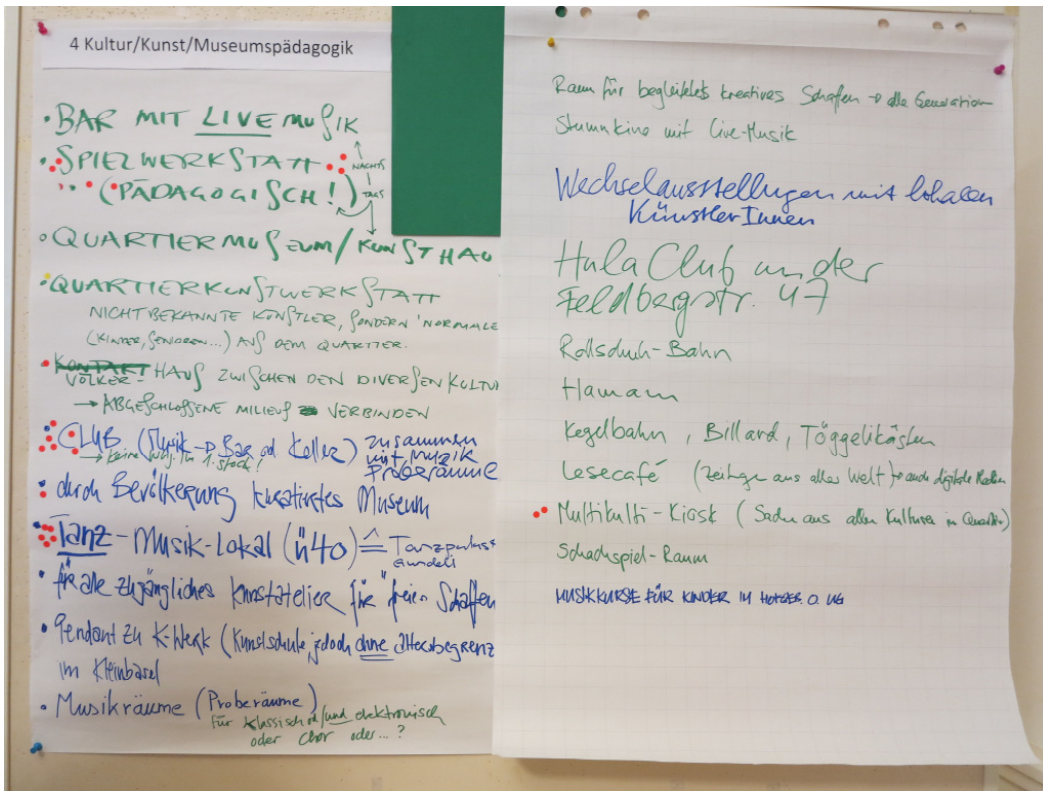 4 Kultur/Kunst/Museumspädagogik
• BAR MIT LIVE MUSIK
• SPIELWERKSTATT NACHTS
(PÄDAGOGISCH!) TAGS
• QUARTIERMUSEUM/KUNSTHAU
• QUARTIERKUNSTWERKSTATT
NICHT BEKANNTE KÜNSTLER, SONDERN 'NORMALE
(KINDER, SENIOREN...) AUS DEM QUARTIER.
• KONTAKT
VÖLKER- HAUS ZWISCHEN DEN DIVERSEN KULTU
→ ABGESCHLOSSENE MILIEUS VERBINDEN
• CLUB (Musik → Bar od Keller) zusammen
→ keine im 1. Stock! mit Muzik
Proberäume
• durch Bevölkerung kuratiertes Museum
• Tanz-Musik-Lokal (ü40) ≙
• für alle zugängliches Kunstatelier für "freies Schaffen
• Pendant zu K-Werk (Kunstschule jedoch ohne altersbegrenz
im Kleinbasel
• Musikräume (Proberäume)
für klassisch od/und elektronisch
oder Chor oder...?
Raum für begleitetes kreatives Schaffen → alle Generation
Stummkino mit Live-Musik
Wechselausstellungen mit lokalen
KünstlerInnen
Hula Club an der
Feldbergstr. 47
Rollschuh-Bahn
Hamam
Kegelbahn, Billard, Töggelikästen
Lesecafé (Zeitungen aus aller Welt) → auch digitale Medien
• Multikulti-Kiosk (Sachen aus allen Kulturen im Quartier)
Schachspiel-Raum
MUSIKKURSE FÜR KINDER IM O. UG